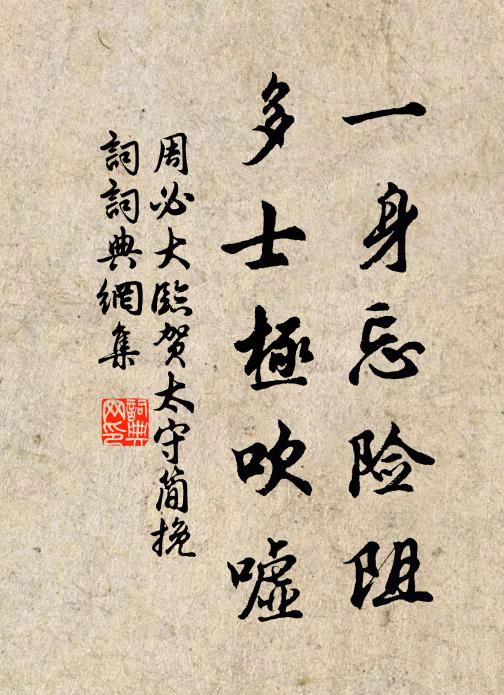 一身忘险阻
多士極吹嘘
周必大臨贺太守简挽
詞詞典網集
詞典網印